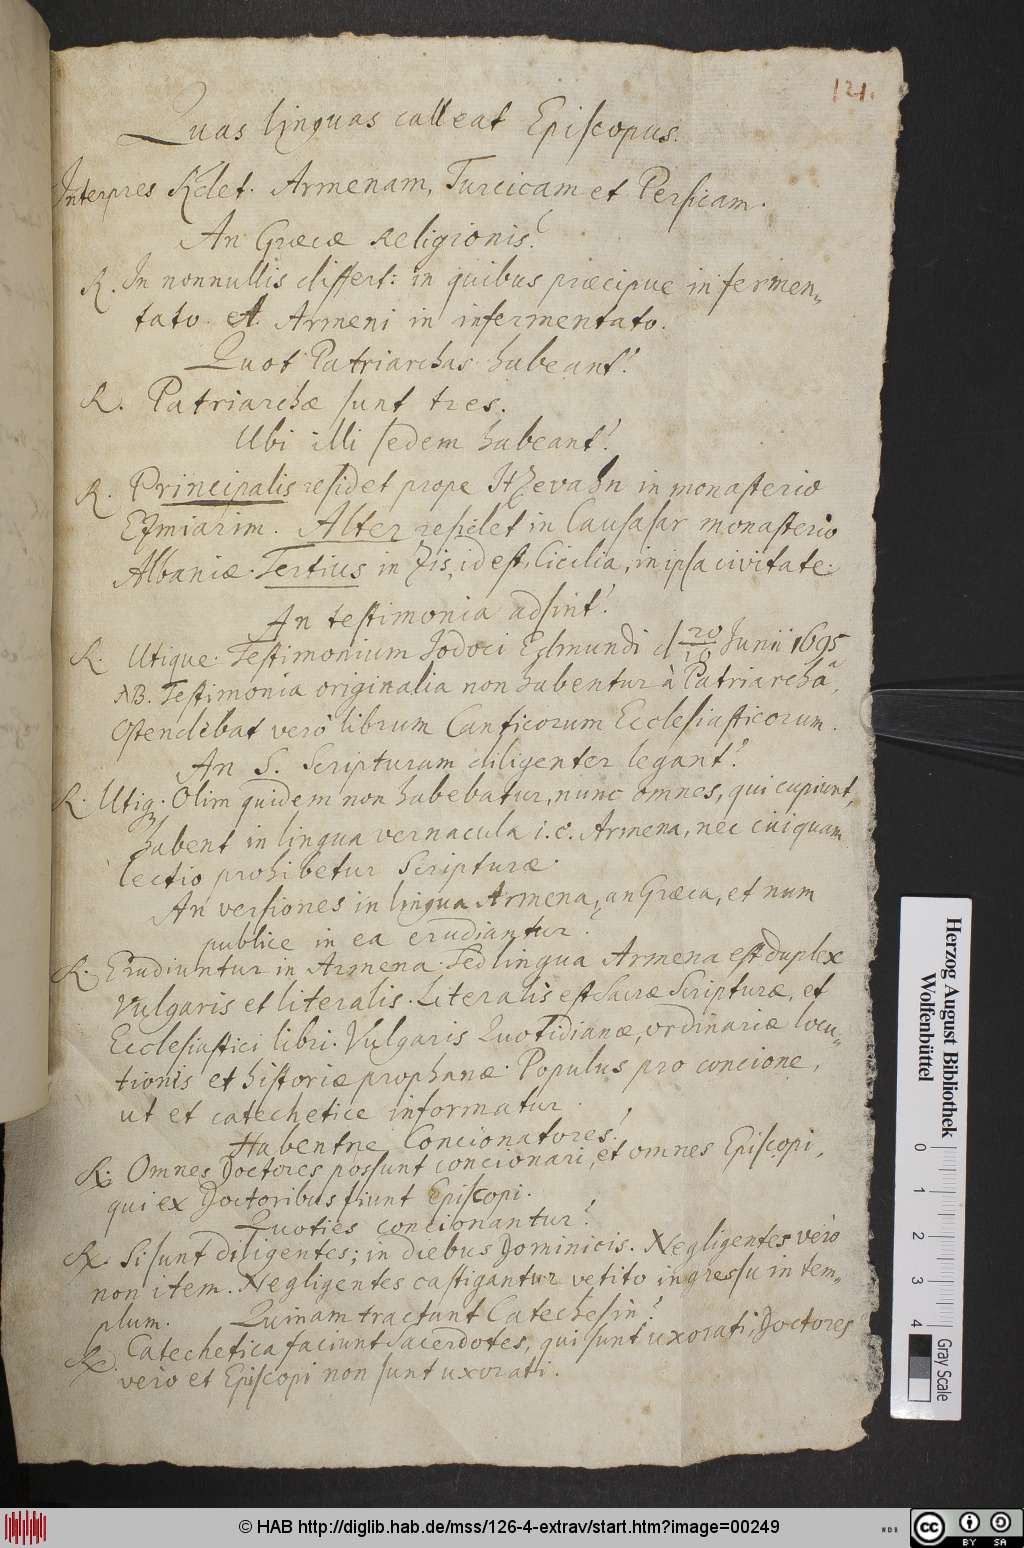 121.
Quas linguas calleat Episcopus.
Interpres Rdet. Armenam, Turcicam et Persicam.
An Græcæ Religionis?
R. In nonnullis differt: in quibus præcipue in fermen„
tato et. Armeni in infermentato.
Quot Patriarchas habeant?
R. Patriarchæ sunt tres.
Ubi illi sedem habeant?
R. Principalis residet prope Itzevahn in monasterio
Ezmiarim. Alter residet in Causasar monasterio
Albaniæ. Tertius in Zis, id est, Cicilia, in ipsa civitate.
An testimonia adsint?
R. Utique. Testimonium Jodoci Edmundi d 20/10 Junii 1695
NB. Testimonia originalia non habentur à Patriarchâ,
Ostendebat verò librum Canticorum Ecclesiasticorum.
An S. Scripturam diligenter legant?
R. Utiq. Olim quidem non habebatur, nunc omnes, qui cupiunt,
habent in lingua vernacula i.e. Armena, nec cuiquam
lectio prohibetur Scripturæ.
An versiones in lingua Armena, an Græca, et num
publice in ea erudiantur?
R. Erudiuntur in Armena. Sed lingua Armena est duplex
Vulgaris et literalis. Literalis est Sacræ Scripturæ, et
Ecclesiastici libri. Vulgaris Quotidianæ, ordinariæ locu„
tionis et historiæ prophanæ. Populus pro concione,
ut et catechetice informatur.
Habentne Concionatores?
R. Omnes Doctores possunt concionari, et omnes Episcopi,
qui ex Doctoribus fiunt Episcopi.
Quoties concionantur?
R. Si sunt diligentes; in diebus Dominicis. Negligentes verò
non item. Negligentes castigantur vetito ingressu in tem„
plum. Quinam tractunt Catechesin?
R. Catechetica faciunt Sacerdotes, qui sunt uxorati, Doctores
vero et Episcopi non sunt uxorati.
Herzog August Bibliothek
Wolfenbüttel
0 1 2 3 4
Gray Scale
© HAB http://diglib.hab.de/mss/126-4-extrav/start.htm?image=00249
cc BY SA